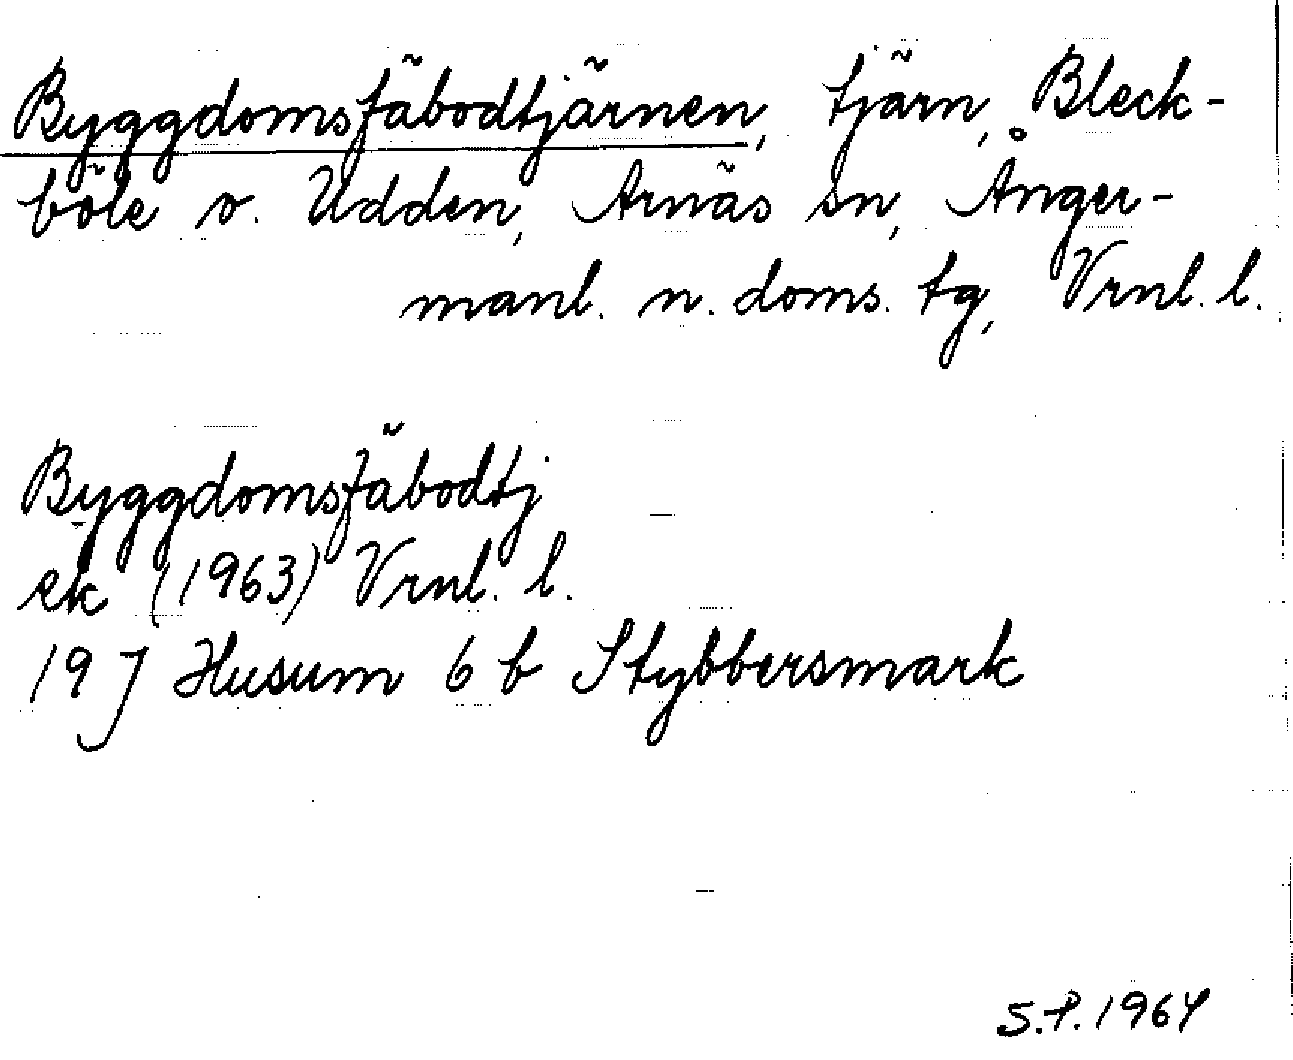 Byggdomsfäbodtjärnen, tjärn, Bleck-
böle o. Udden, Arnäs sn, Ånger-
manl. n. doms. tg, Vrnl. l.
Byggdomsfäbodtj
ek (1963) Vrnl. l.
19 J Husum 6 b Stybbersmark
S.P. 1964